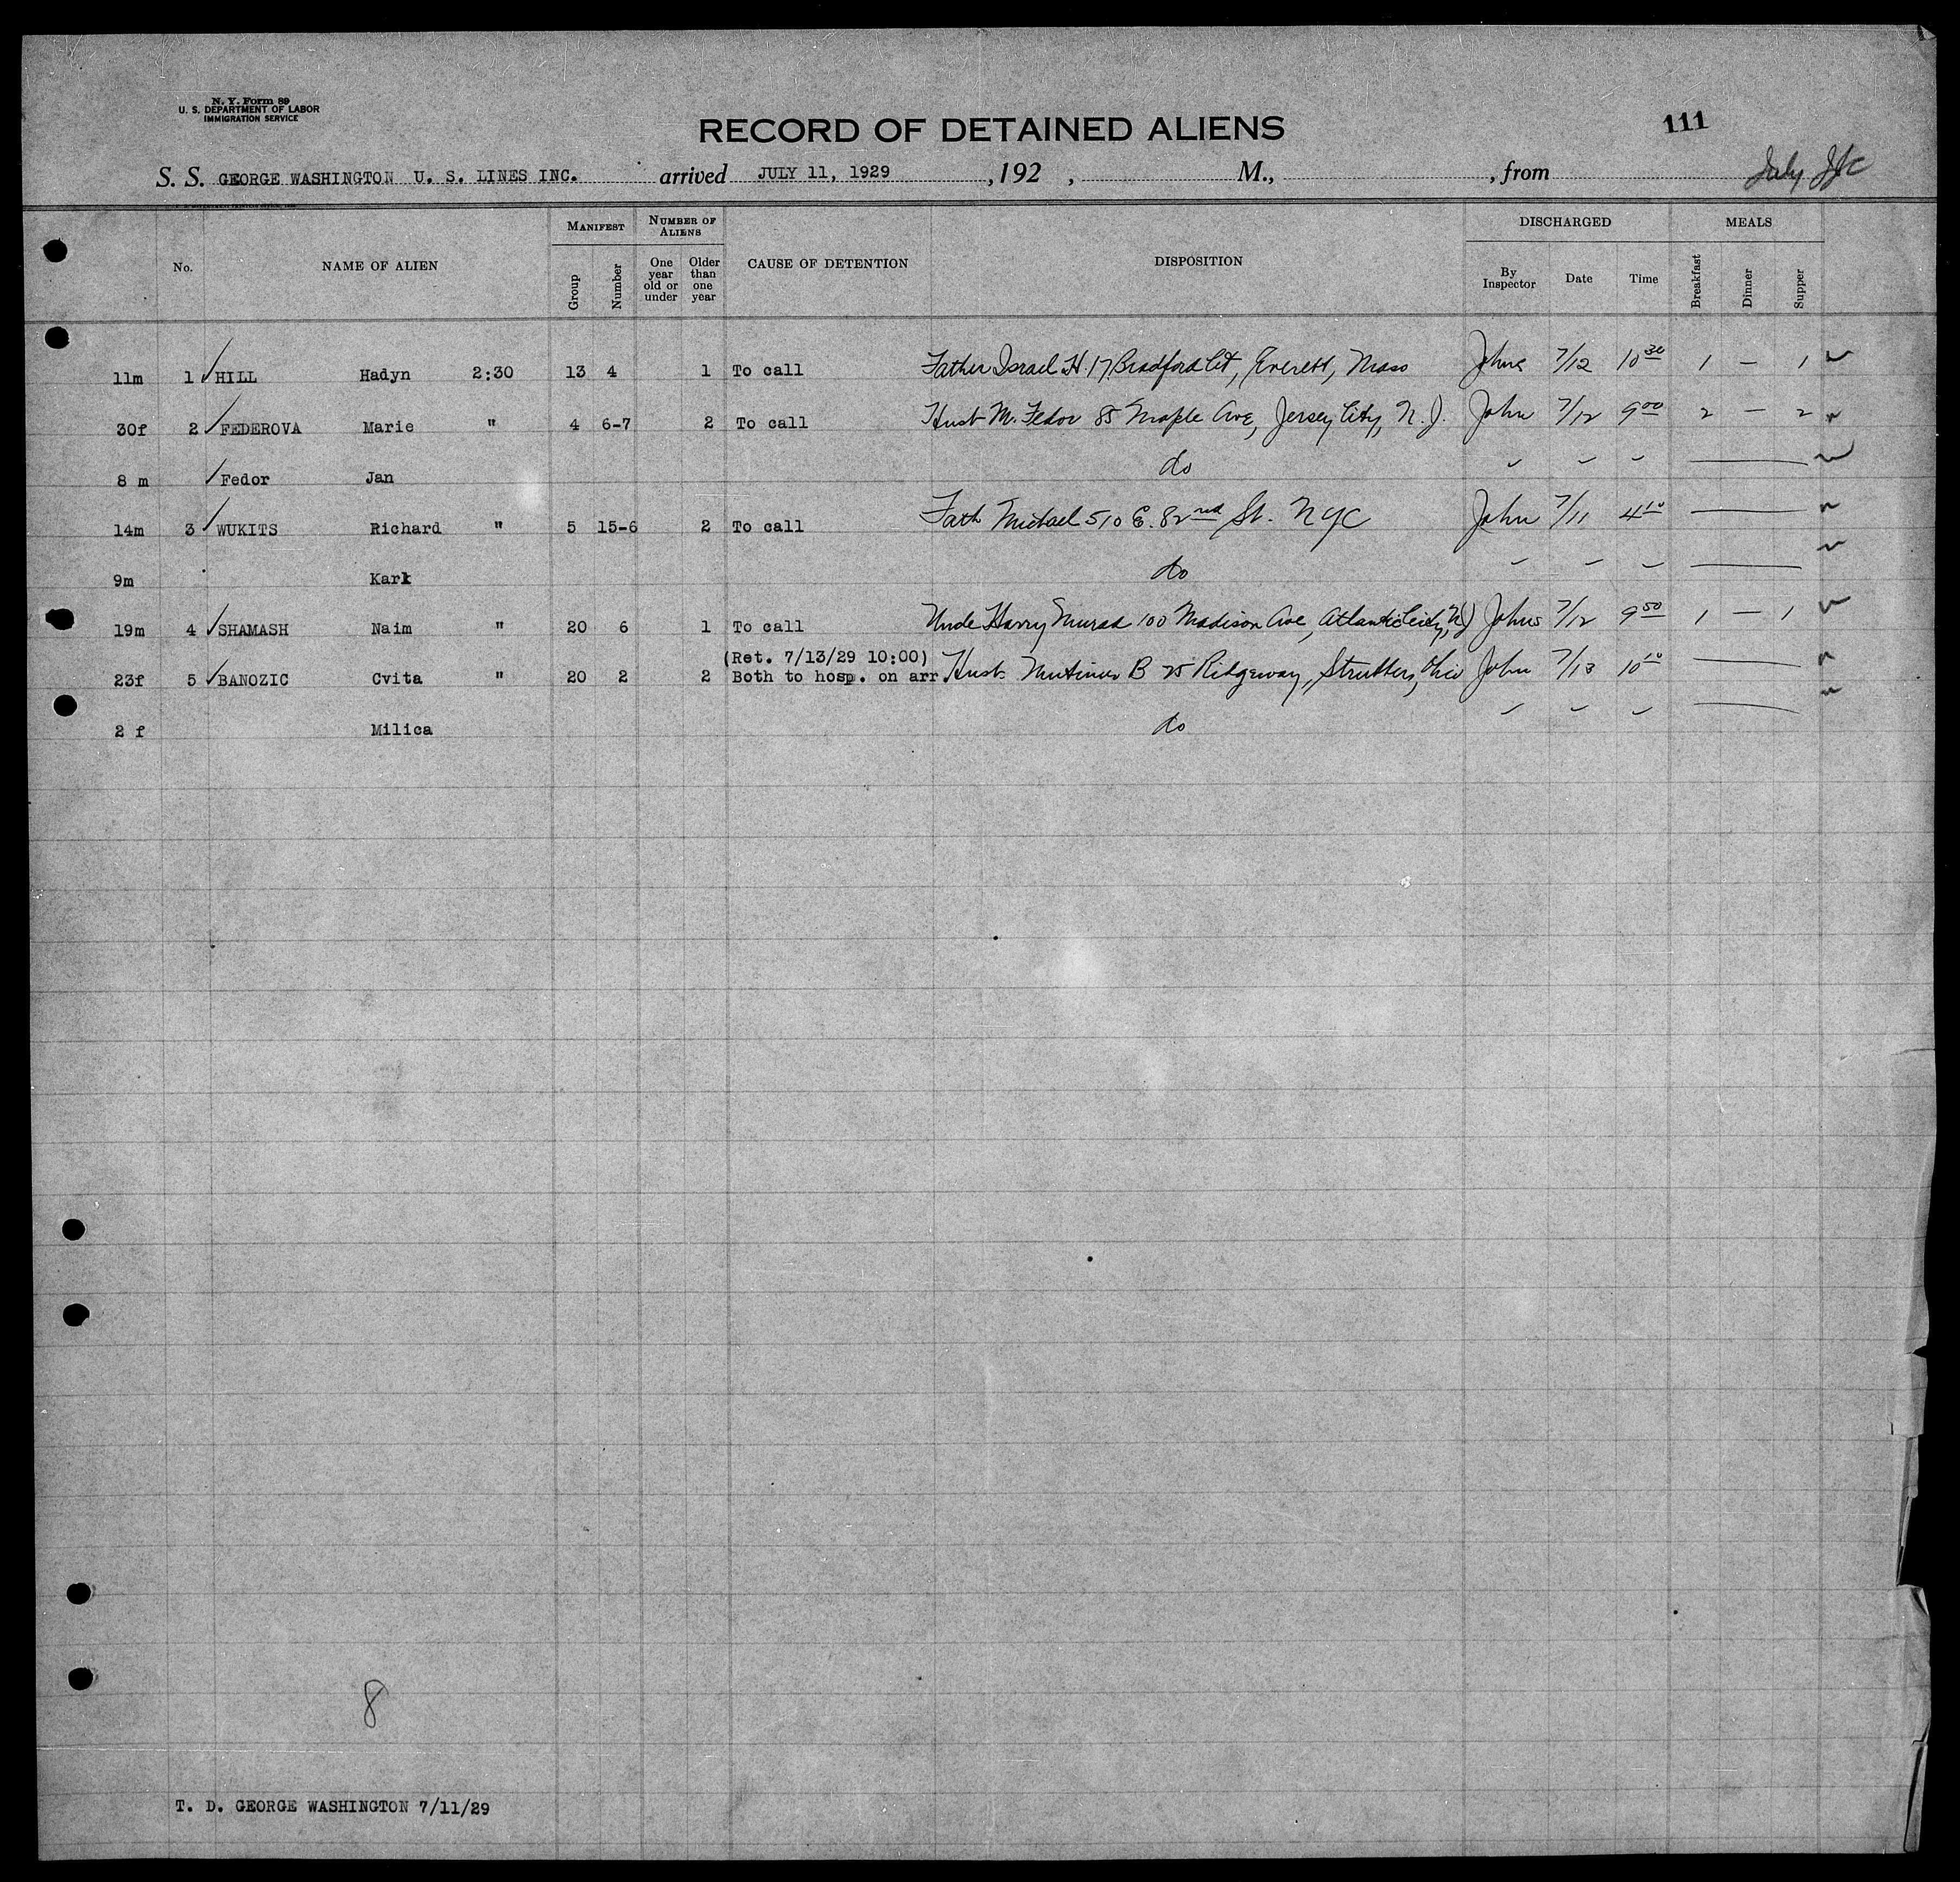 N. Y. Form 89
U. S. DEPARTMENT OF LABOR
IMMIGRATION SERVICE
RECORD OF DETAINED ALIENS
111
S. S. GEORGE WASHINGTON U. S. LINES INC. arrived JULY 11, 1929 , 192 , M., , from July
No. NAME OF ALIEN MANIFEST Group Number NUMBER OF ALIENS One year old or under Older than one year CAUSE OF DETENTION DISPOSITION DISCHARGED By Inspector Date Time MEALS Breakfast Dinner Supper
11m 1 HILL Hadyn 2:30 13 4 1 To call Father Israel H. 17 Bradford St, Everett, Mass Johns 7/12 10 30 1 — 1
30f 2 FEDEROVA Marie " 4 6-7 2 To call Husb M. Fedor 85 Maple Ave, Jersey City, N. J. John 7/12 9 00 2 — 2
8 m Fedor Jan do
14m 3 WUKITS Richard " 5 15-6 2 To call Fath Michael 510 E. 82nd St. NYC John 7/11 4 10
9m Karl do
19m 4 SHAMASH Naim " 20 6 1 To call Uncle Harry Murad 100 Madison Ave, Atlantic City, NJ Johns 7/12 9 50 1 — 1
(Ret. 7/13/29 10:00)
23f 5 BANOZIC Cvita " 20 2 2 Both to hosp. on arr. Husb. B 25 Ridgeway, Struthers, Ohio John 7/13 10 10
2 f Milica do
8
T. D. GEORGE WASHINGTON 7/11/29